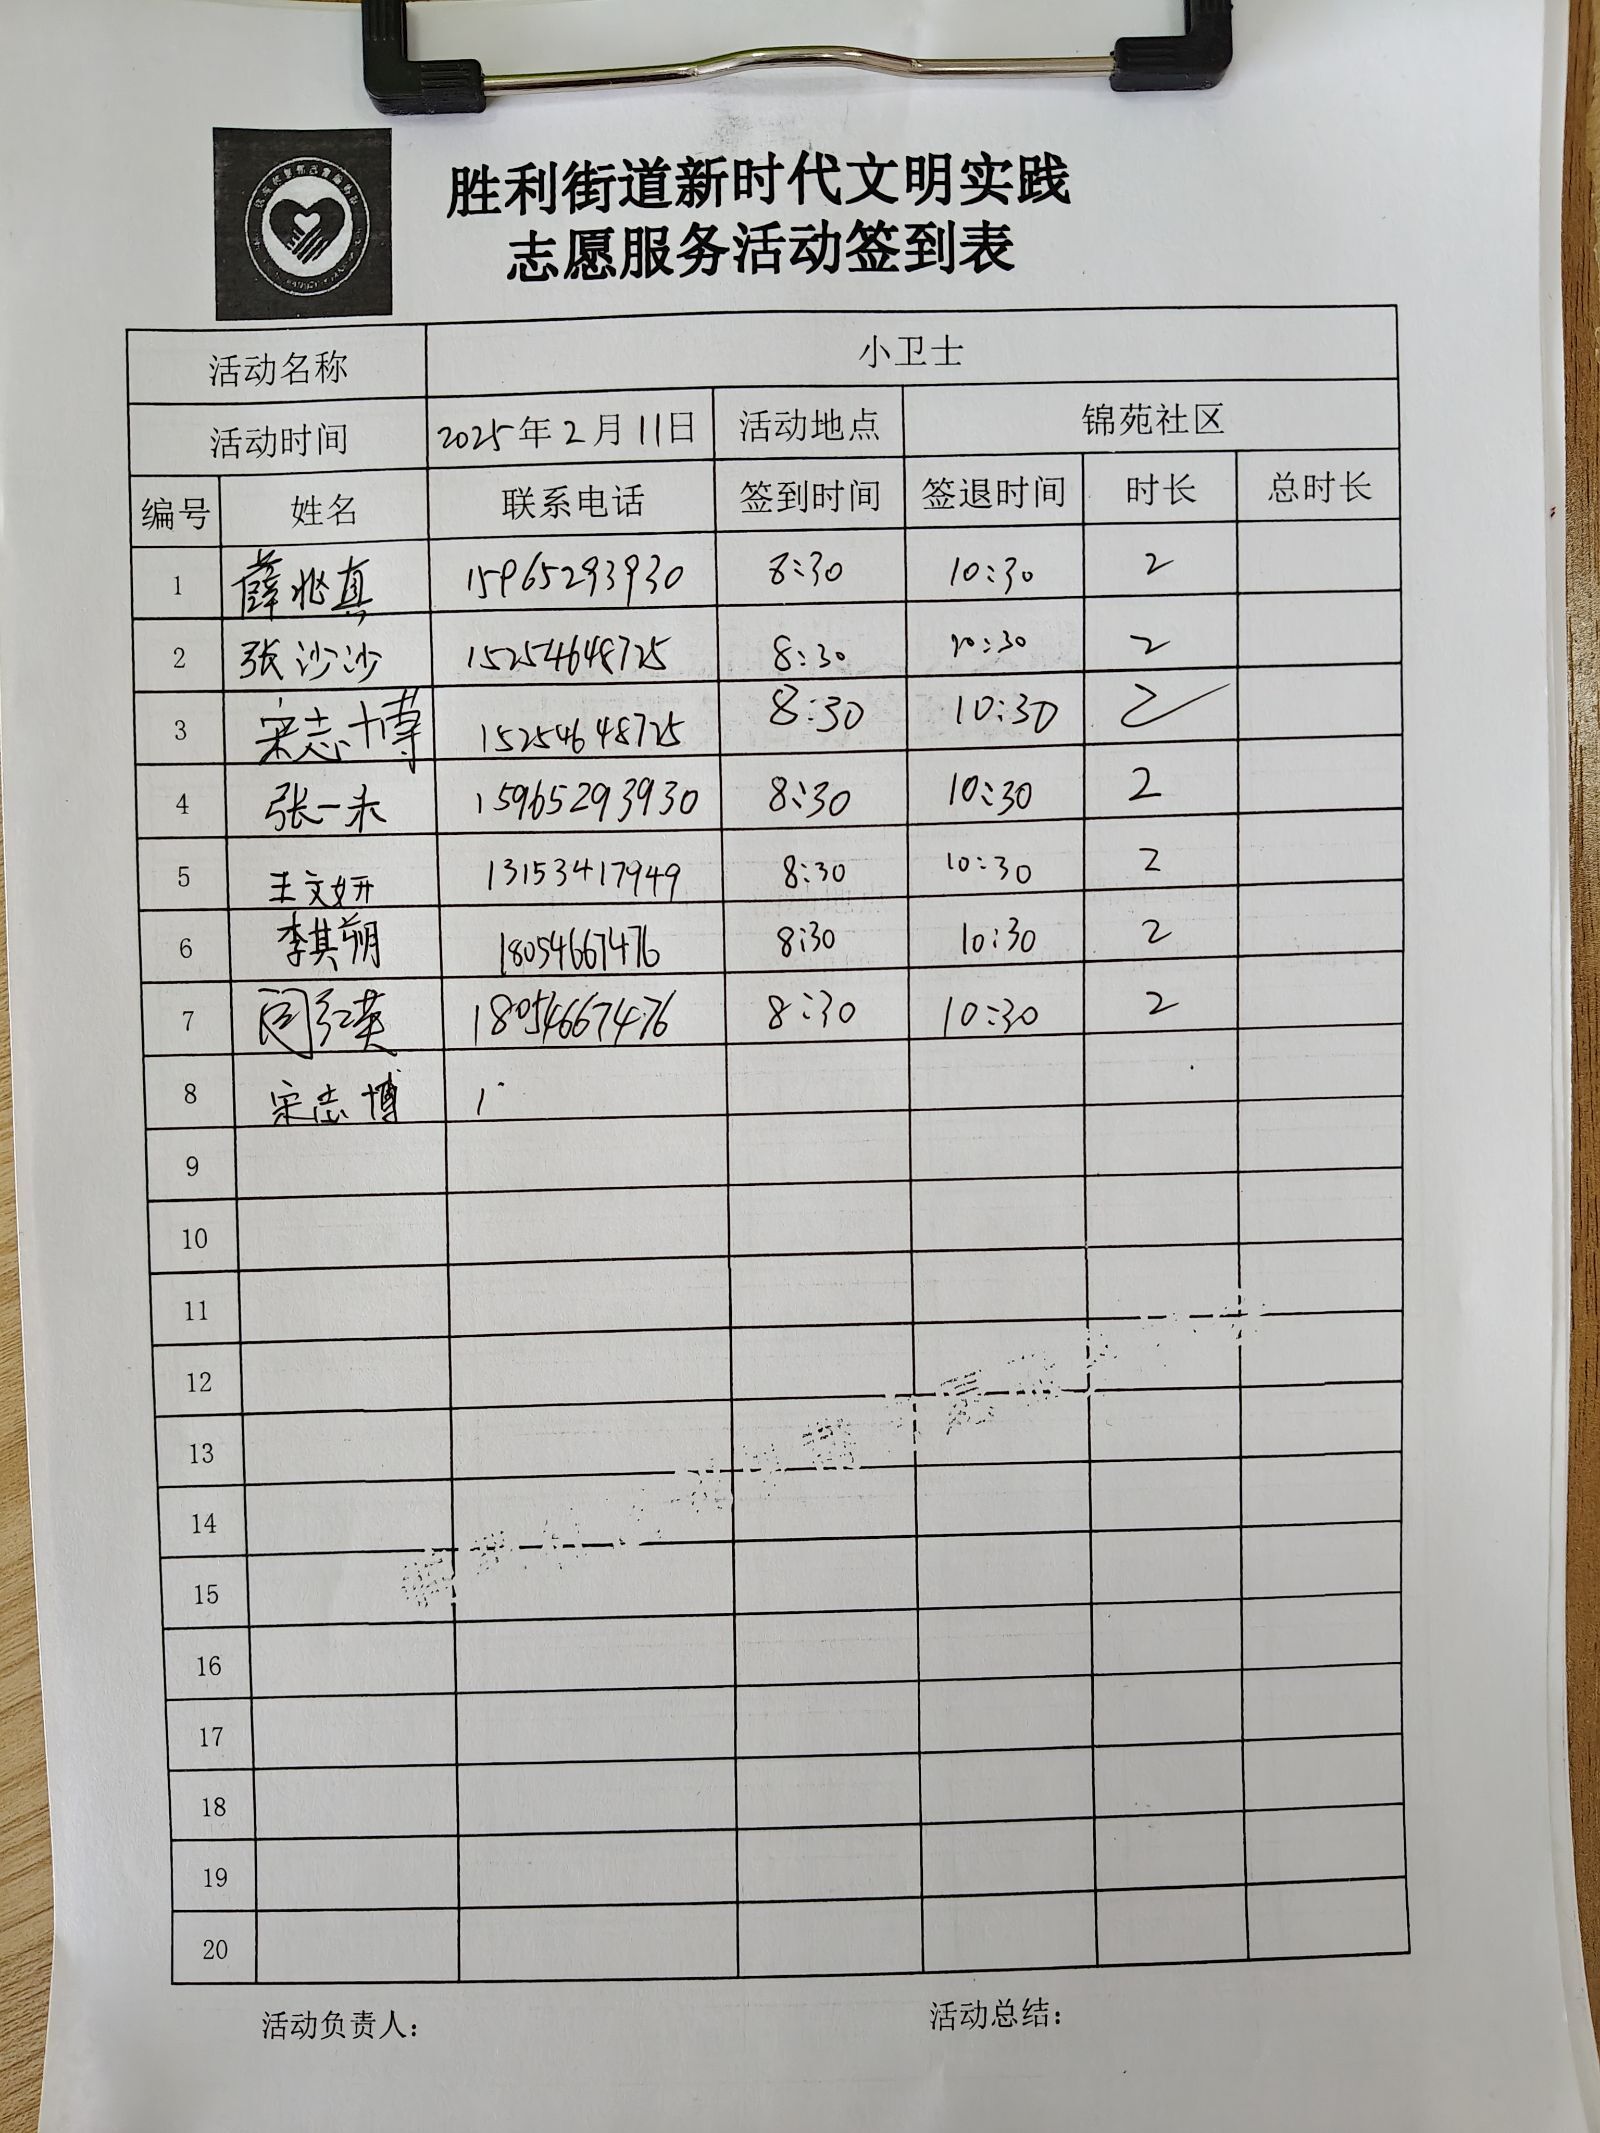 胜利街道新时代文明实践
志愿服务活动签到表
活动名称 小卫士
活动时间 2025年2月11日 活动地点 锦苑社区
编号 姓名 联系电话 签到时间 签退时间 时长 总时长
1 薛兆真 15965293930 8:30 10:30 2
2 张沙沙 15254648725 8:30 10:30 2
3 宋志博 15254648725 8:30 10:30 2
4 张一未 15965293930 8:30 10:30 2
5 王文妍 13153417949 8:30 10:30 2
6 李其朔 18054667476 8:30 10:30 2
7 闫红英 18054667476 8:30 10:30 2
8 宋志博 1
9
10
11
12
13
14
15
16
17
18
19
20
活动负责人： 活动总结：